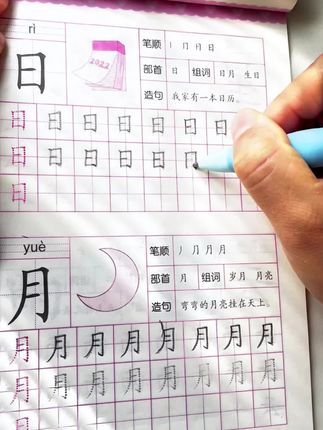 rì
日
2022
笔顺 丨 冂 日 日
部首 日 组词 日月 生日
造句 我家有一本日历。
日 日 日 日 日 日 日
日 日 日 日 日
日
yuè
月
笔顺 丿 冂 月 月
部首 月 组词 岁月 月亮
造句 弯弯的月亮挂在天上。
月 月 月 月 月 月 月 月
月 月 月 月 月 月 月 月
月